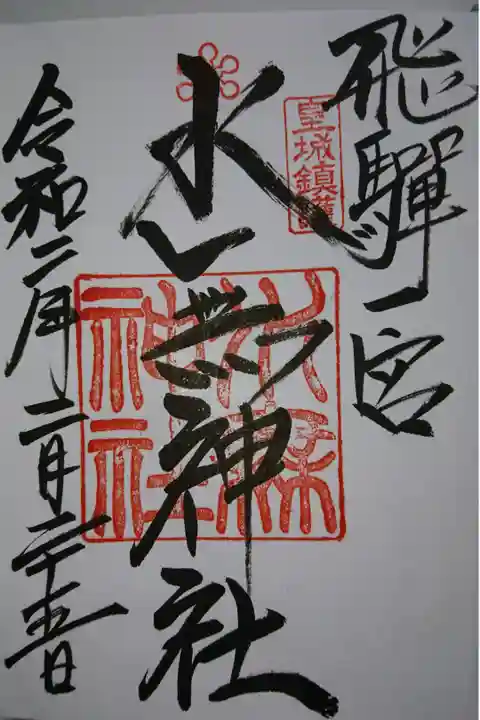 飛騨一宮
皇城鎮護
水無神社
令和二年二月二十五日